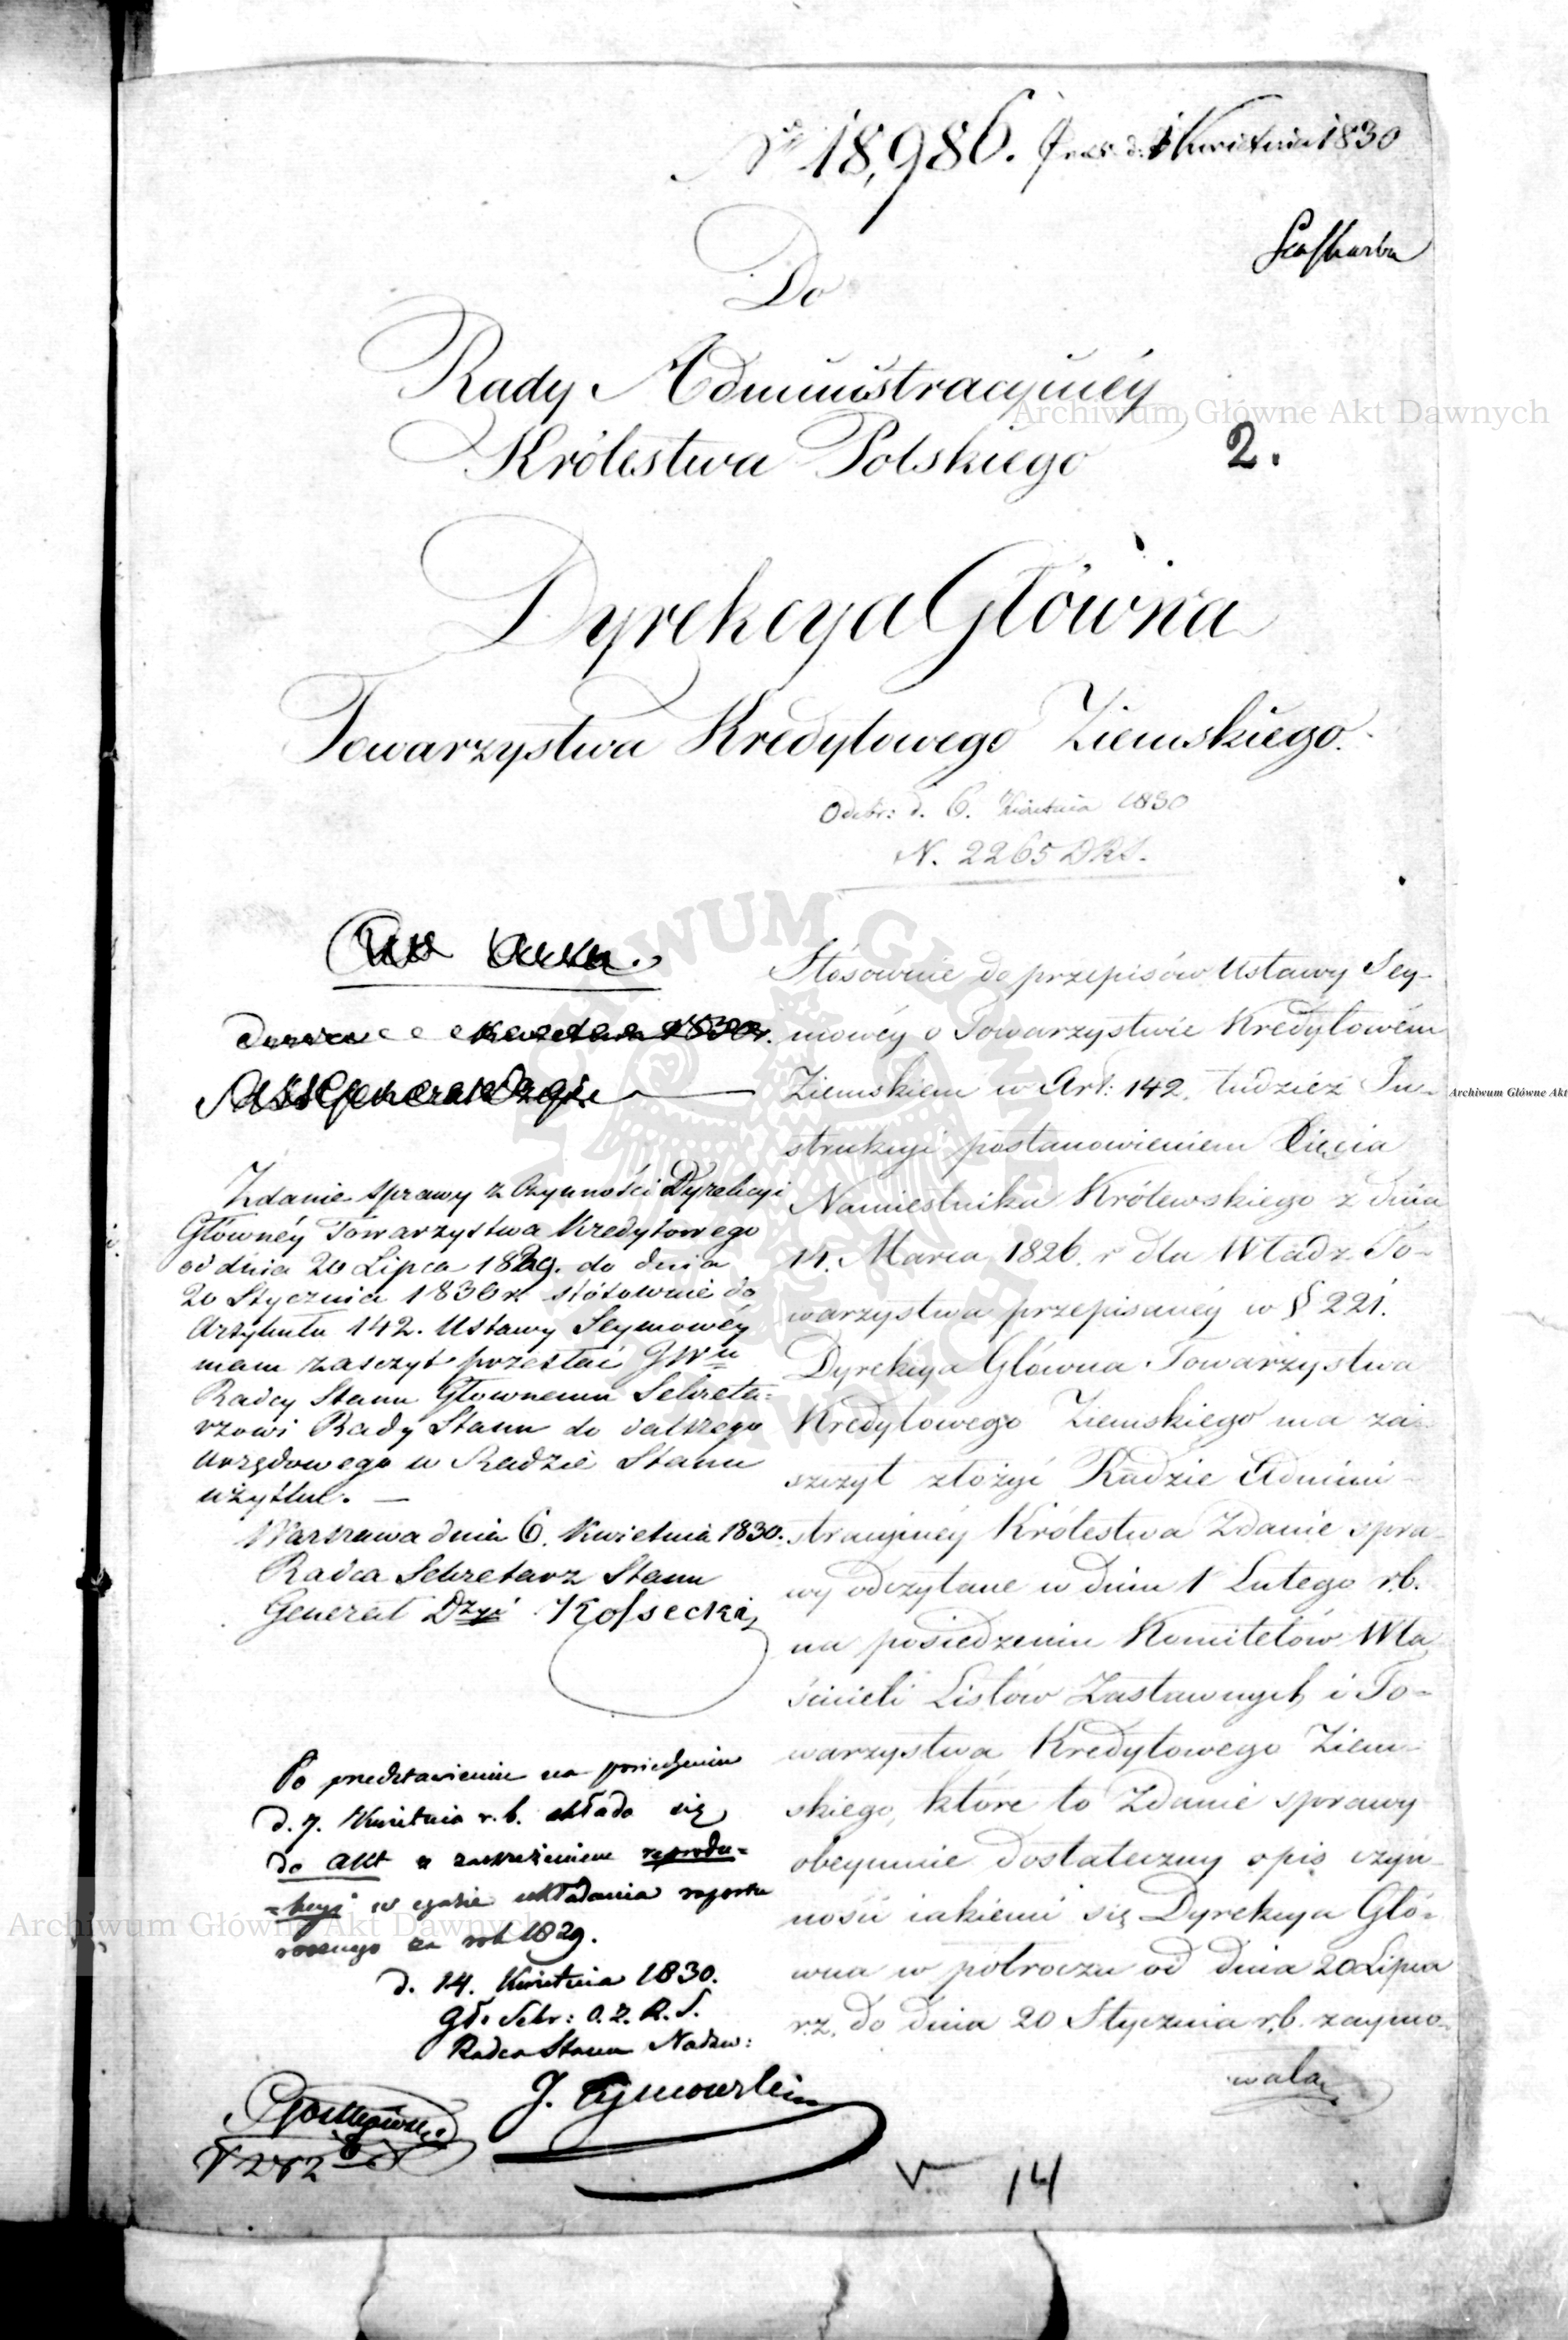 No 18,986. Prez. d. 1 Kwietnia 1830
Do
Rady Administracyjnéy
Królestwa Polskiego
2.
Dyrekcya Główna
Towarzystwa Kredytowego Ziemskiego.
Odebr: d. 6. Kwietnia 1830
N. 2265 DRS.
Zdanie sprawy z Czynności Dyrekcyi
Głównéy Towarzystwa Kredytowego
od dnia 20 Lipca 1829. do dnia
20 Stycznia 1830 r. stósownie do
Artykułu 142. Ustawy Seymowéy
mam zaszczyt przesłać JWu
Radcy Stanu Głównemu Sekreta=
rzowi Rady Stanu do dalszego
urzędowego w Radzie Stanu
użytku. —
Warszawa dnia 6. Kwietnia 1830.
Radca Sekretarz Stanu
Generał Dyi Kossecki
Po przedstawieniu na posiedzeniu
d. 7. Kwietnia r. b. składa się
do akt z zastrzeżeniem reprodu=
=kcyi w czasie układania raportu
rocznego za rok 1829.
d. 14. Kwietnia 1830.
Gł: Sekr: O. Z. R. S.
Radca Stanu Nadzw:
J. Tymowski
Stósownie do przepisów Ustawy Sey-
mowéy o Towarzystwie Kredytowém
Ziemskiem w Art: 142. tudzież In-
strukcyi postanowieniem Xięcia
Namiestnika Królewskiego z dnia
14. Marca 1826. r dla Władz To-
warzystwa przepisanéy w § 221.
Dyrekcya Główna Towarzystwa
Kredytowego Ziemskiego ma za-
szczyt złożyć Radzie Admini-
stracyjnéy Królestwa Zdanie spra-
wy odczytane w dniu 1 Lutego r.b.
na posiedzeniu Komitetów Wła
ścicieli Listów Zastawnych i To-
warzystwa Kredytowego Ziem-
skiego, które to Zdanie sprawy
obeymuie dostateczny opis czyn-
ności iakiemi się Dyrekcya Głó-
wna w półroczu od dnia 20 Lipca
r.z. do dnia 20 Stycznia r.b. zaymo-
wała
14
Archiwum Główne Akt Dawnych
Archiwum Główne Akt
Archiwum Główne Akt Dawnych
ARCHIWUM GŁÓWNE AKT DAWNYCH